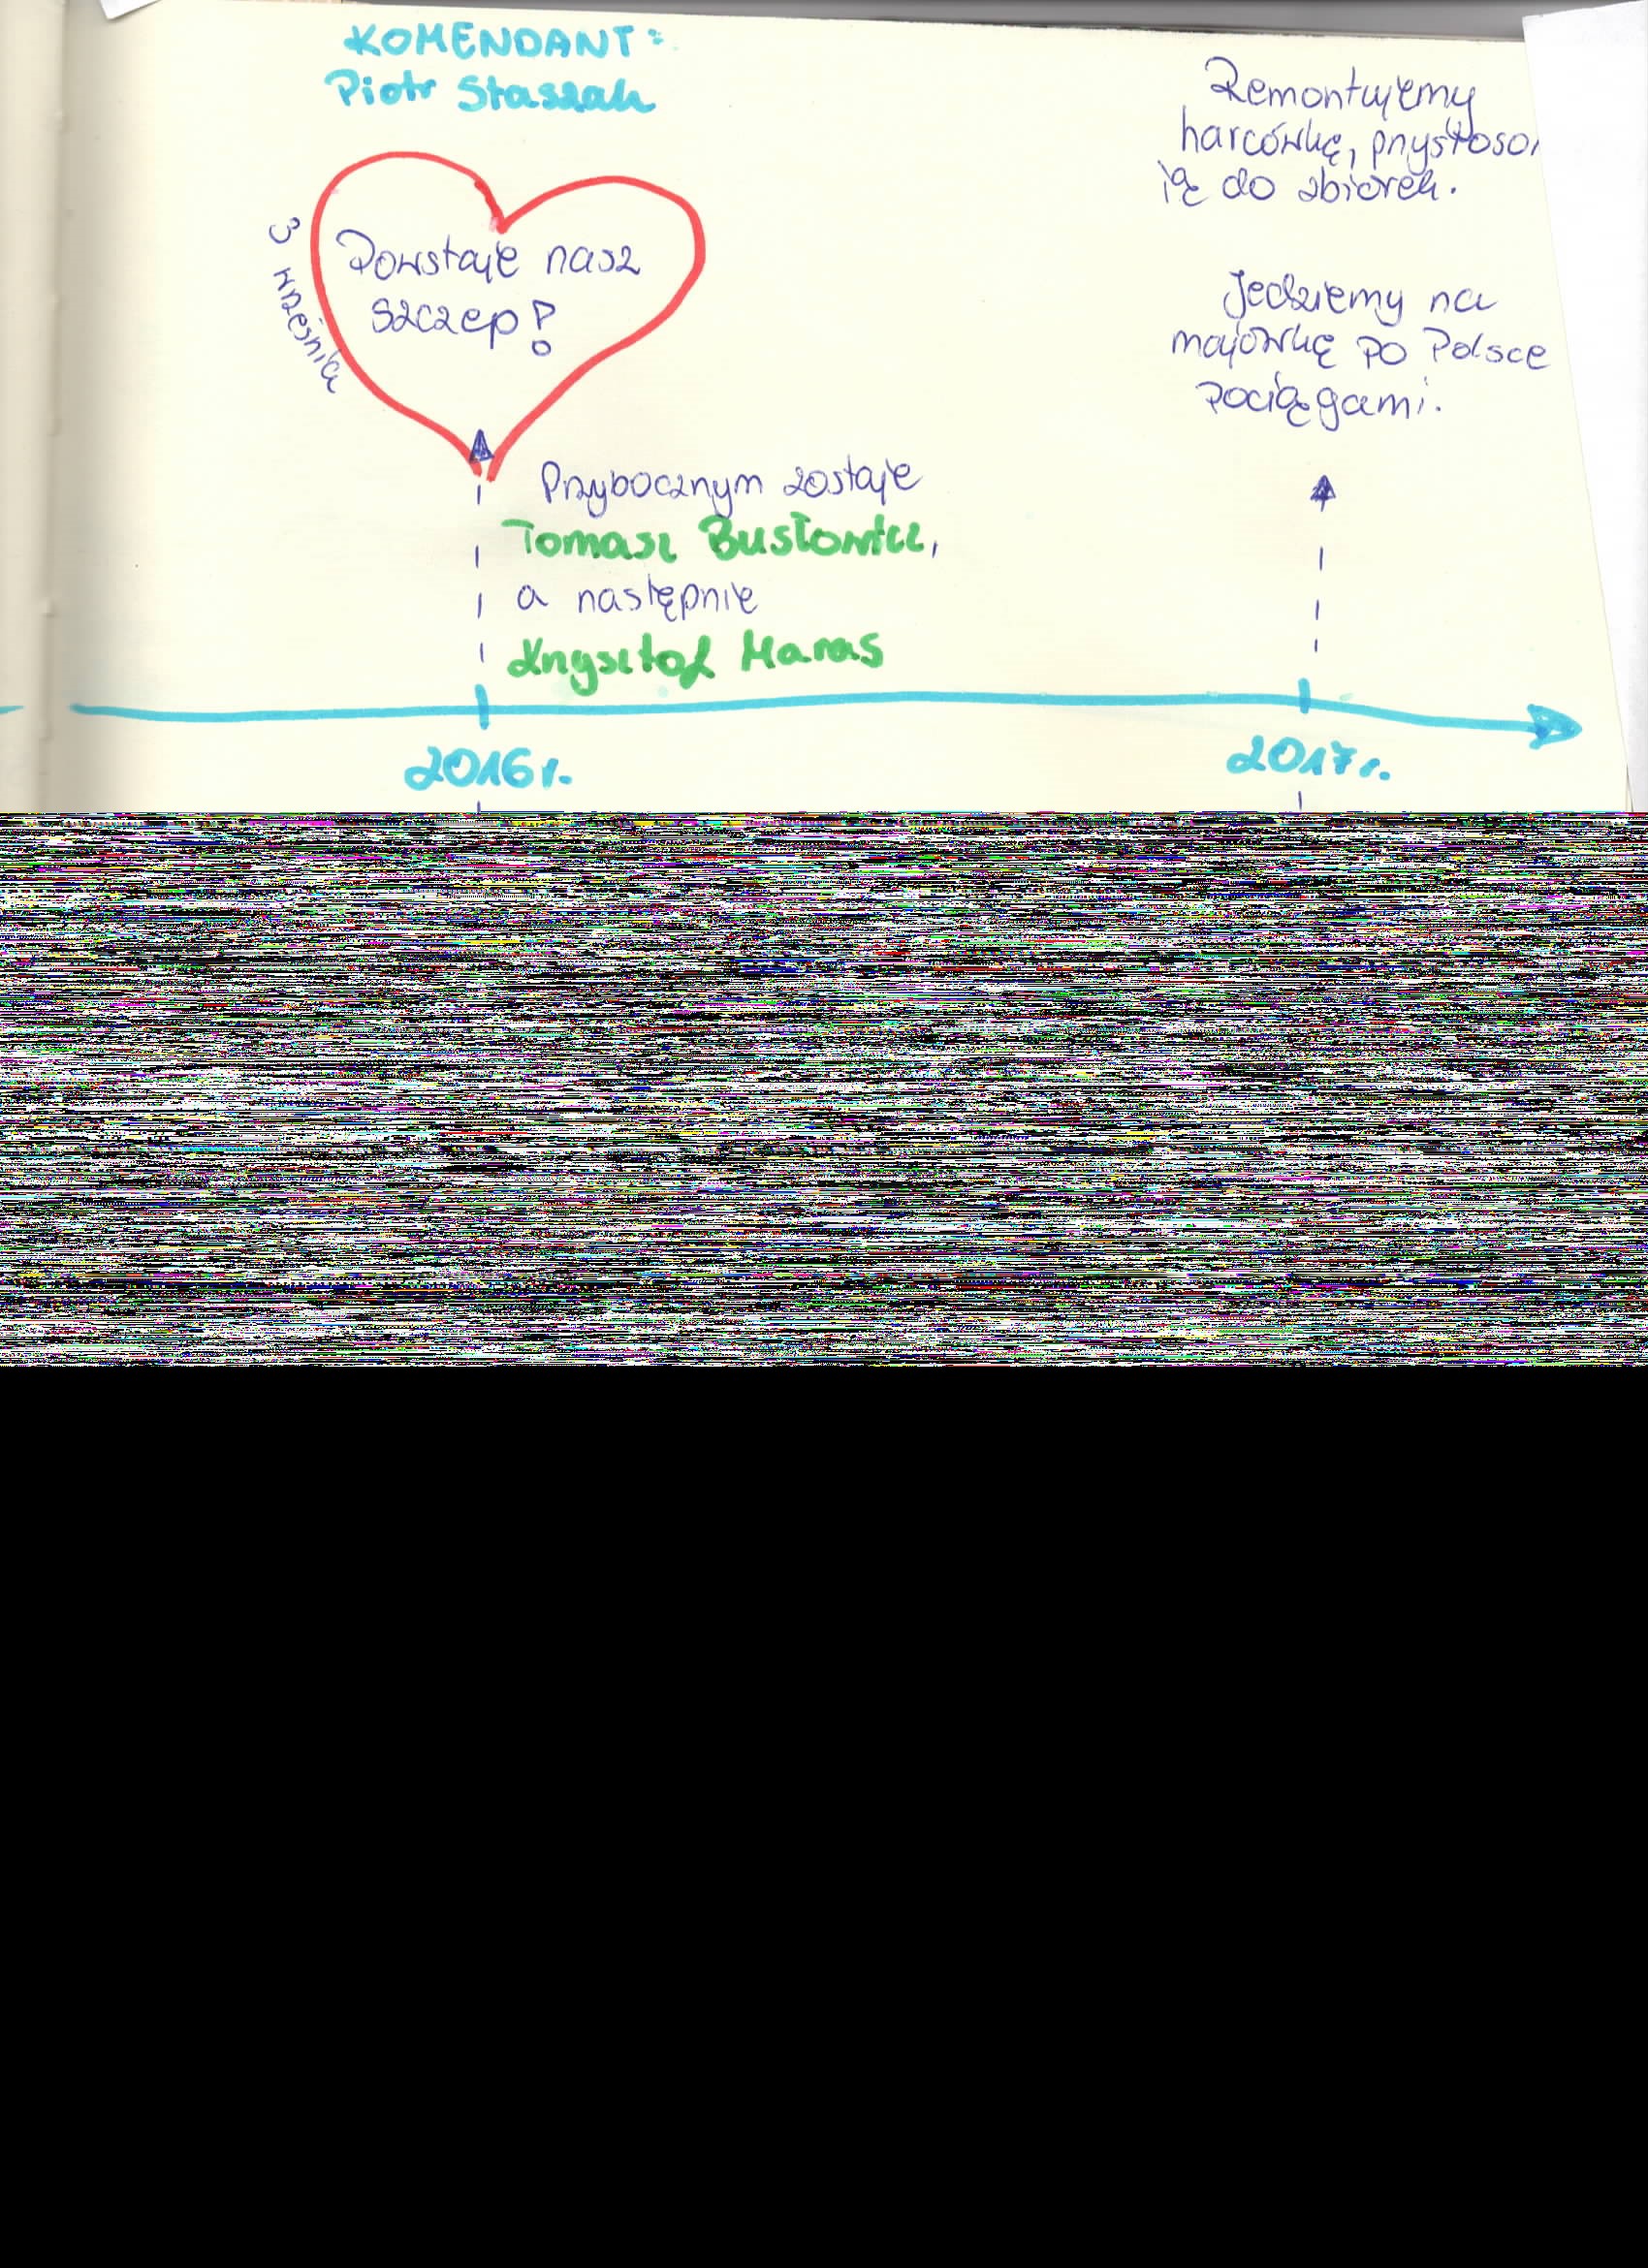 KOMENDANT:
Piotr Staszak
3 września
Powstaje nasz
szczep!
Przybocznym zostaje
Tomasz Busłowicz,
a następnie
Krzysztof Maras
2016 r.
Remontujemy
harcówkę, przystoso
ją do zbiórek.
Jedziemy na
majówkę po Polsce
pociągami.
2017 r.